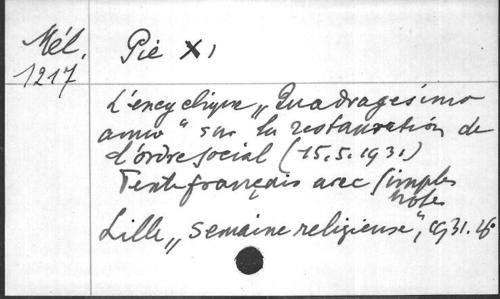 Mél.
1217
Pie XI
L'encyclique „Quadragesimo
anno" sur la restauration de
l'ordre social (15.5.1931)
Texte français avec simples
notes
Lille „Semaine religieuse", 1931.